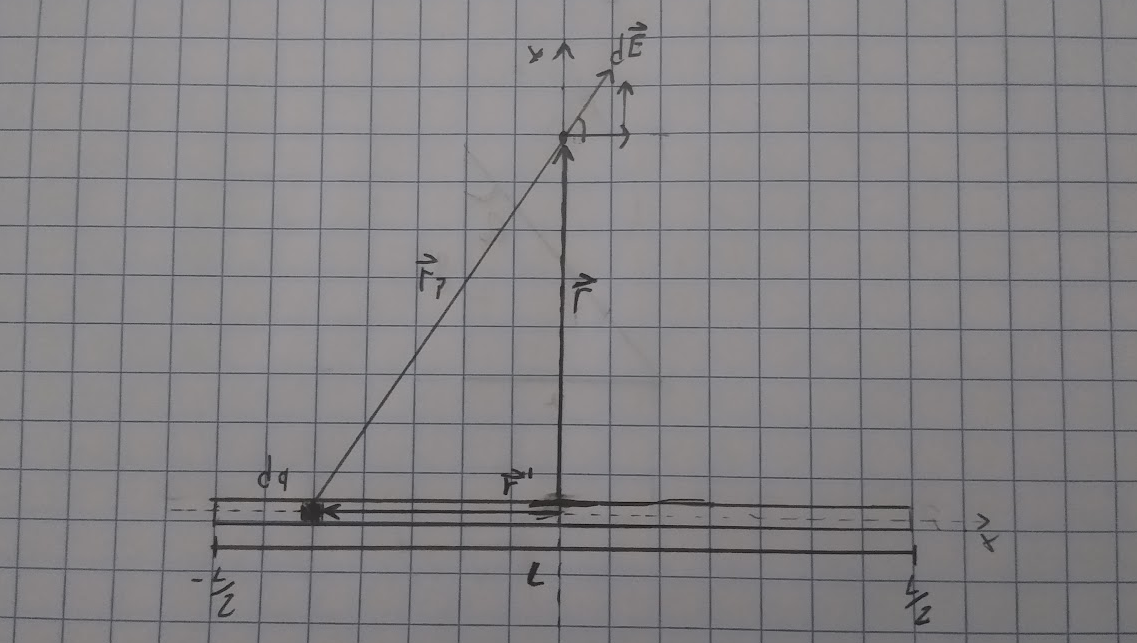 x dE⃗
r⃗₁
r⃗
dq
r⃗'
x
L
-L/2
L/2